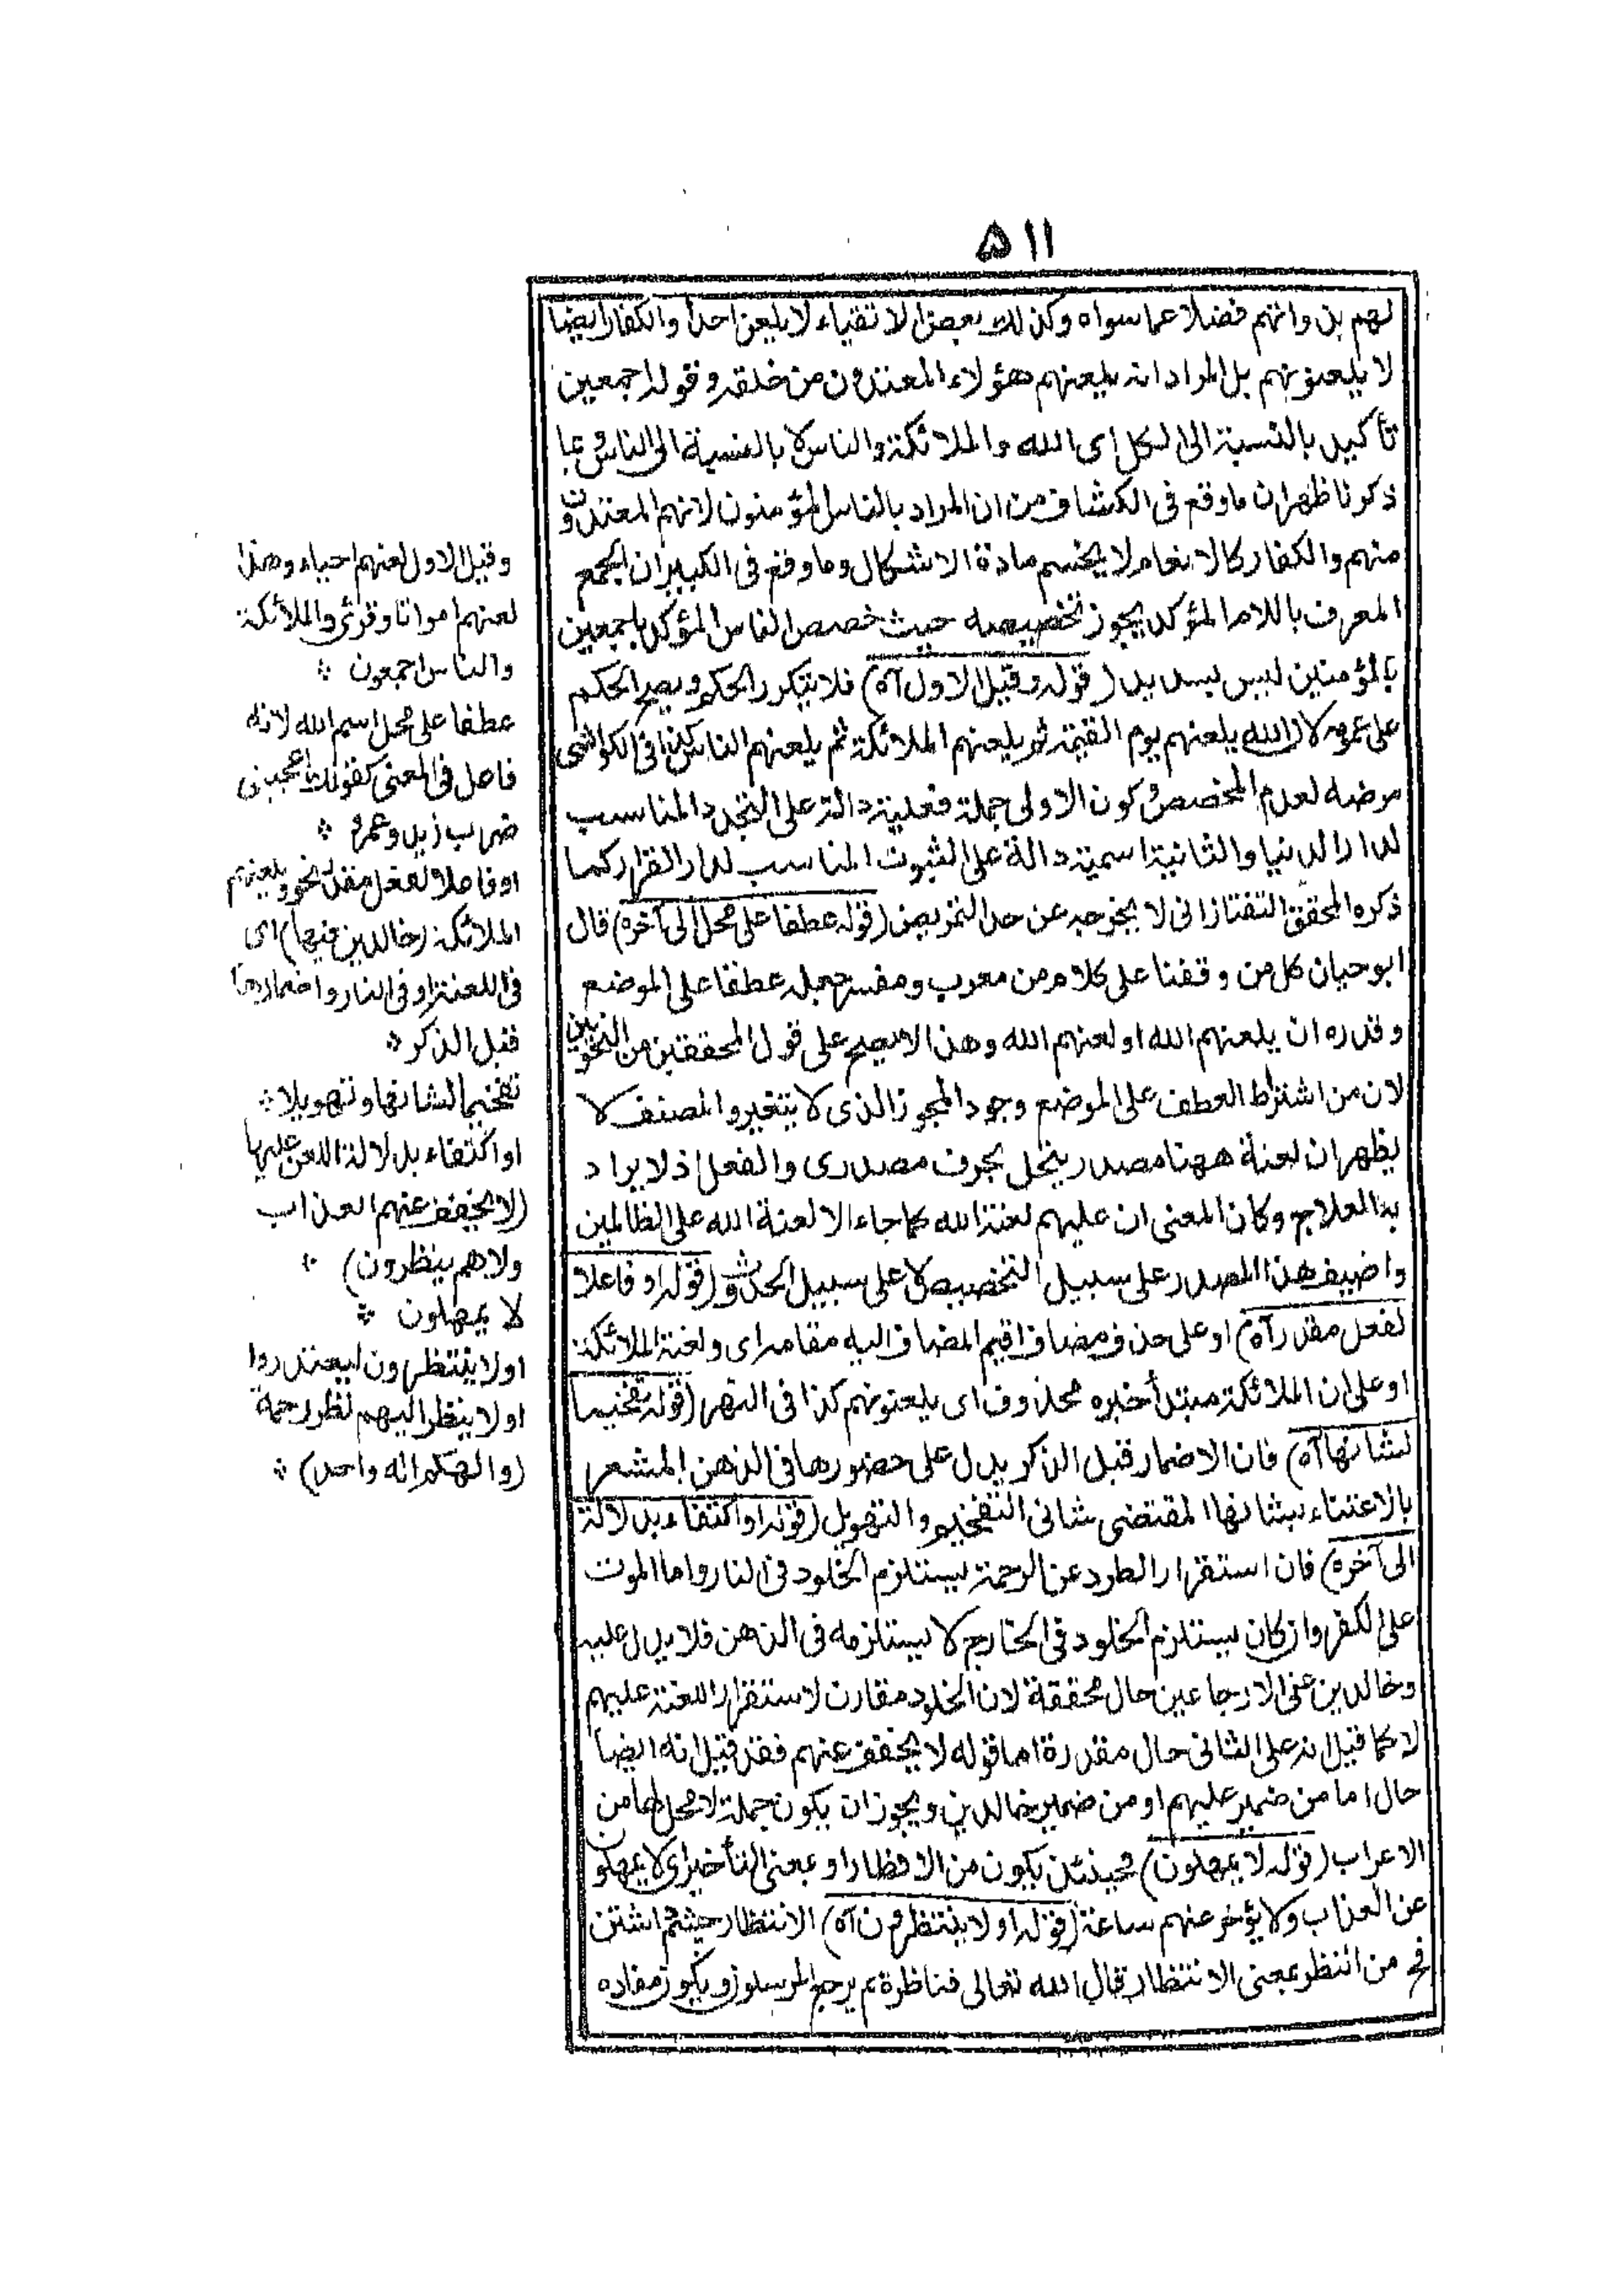 ۵۱۱
لهم بذواتهم فضلا عما سواه وكذلك بعض الاتقياء لا يلعن احدا والكفار ايضا
لا يلعنونهم بل المراد انه يلعنهم هؤلاء المعتدون من خلقه وقوله اجمعين
تأكيد بالنسبة الى الكل اى الله والملائكة والناس لا بالنسبة الى الناس وبما
ذكرنا ظهر ان ما وقع فى الكشاف من ان المراد بالناس المؤمنون لانهم المعتدون
منهم والكفار كالانعام لا يحسم مادة الاشكال وما وقع فى الكبير ان الجمع
المعرف باللام المؤكد يجوز تخصيصه حيث خصص الناس المؤكد باجمعين
بالمؤمنين ليس بسديد (قوله وقيل الاول آه) فلا يتكرر الحكم ويصح الحكم
على عمومه لان الله يلعنهم يوم القيمة ثم يلعنهم الملائكة ثم يلعنهم الناس كذا فى الكواشى
مرضه لعدم المخصص وكون الاولى جملة فعلية دالة على التجدد المناسب
لدار الدنيا والثانية اسمية دالة على الثبوت المناسب لدار القرار كما
ذكره المحقق التفتازانى لا يخرجه عن حد التمريض (قوله عطفا على محل الى آخره) قال
ابو حيان كل من وقفنا على كلامه من معرب ومفسر جعله عطفا على الموضع
وقدره ان يلعنهم الله او لعنهم الله وهذا لا يصح على قول المحققين من النحويين
لان من اشترط العطف على الموضع وجود المجوز الذى لا يتغير والمصنف لا
يظهر ان لعنة ههنا مصدر ينحل بحرف مصدرى والفعل اذ لا يراد
به العلاج وكان المعنى ان عليهم لعنة الله كما جاء الا لعنة الله على الظالمين
واضيف هذا المصدر على سبيل التخصيص لا على سبيل الحدوث (قوله او فاعلا
لفعل مقدر آه) او على حذف مضاف اقيم المضاف اليه مقامه اى ولعنة الملائكة
او على ان الملائكة مبتدأ خبره محذوف اى يلعنونهم كذا فى النهر (قوله تفخيما
لشانها آه) فان الاضمار قبل الذكر يدل على حضورها فى الذهن المشعر
بالاعتناء بشانها المقتضى شانى التفخيم والتهويل (قوله او اكتفاء بدلالة
الى آخره) فان استقرار الطرد عن الرحمة يستلزم الخلود فى النار واما الموت
على الكفر وان كان يستلزم الخلود فى الخارج لا يستلزمه فى الذهن فلا يدل عليه
وخالدين على الارجاعين حال محققة لان الخلود مقارن لاستقرار اللعنة عليهم
لا كما قيل انه على الثانى حال مقدرة اما قوله لا يخفف عنهم فقد قيل انه ايضا
حال اما من ضمير عليهم او من ضمير خالدين ويجوز ان يكون جملة لا محل لها من
الاعراب (قوله لا يمهلون) فحينئذ يكون من الانظار او بمعنى التأخير اى لا يمهلون
عن العذاب ولا يؤخر عنهم ساعة (قوله او لا ينتظرون آه) الانتظار
من انتظر بمعنى الانتظار قال الله تعالى فناظرة بم يرجع المرسلون ويكون مفاده
وقيل الاول لعنهم احياء وهذا
لعنهم امواتا وقرئ والملائكة
والناس اجمعون ❊
عطفا على محل اسم الله لانه
فاعل فى المعنى كقولك اعجبنى
ضرب زيد وعمرو ❊
او فاعلا لفعل مقدر نحو ويلعنهم
الملائكة (خالدين فيها) اى
فى اللعنة او فى النار واضمارها
قبل الذكر ❊
تفخيما لشانها وتهويلا ❊
او اكتفاء بدلالة اللعن عليها
(لا يخفف عنهم العذاب
ولا هم ينظرون) ❊
لا يمهلون ❊
او لا ينتظرون ليعتذروا
او لا ينظر اليهم نظر رحمة
(والهكم اله واحد) ❊